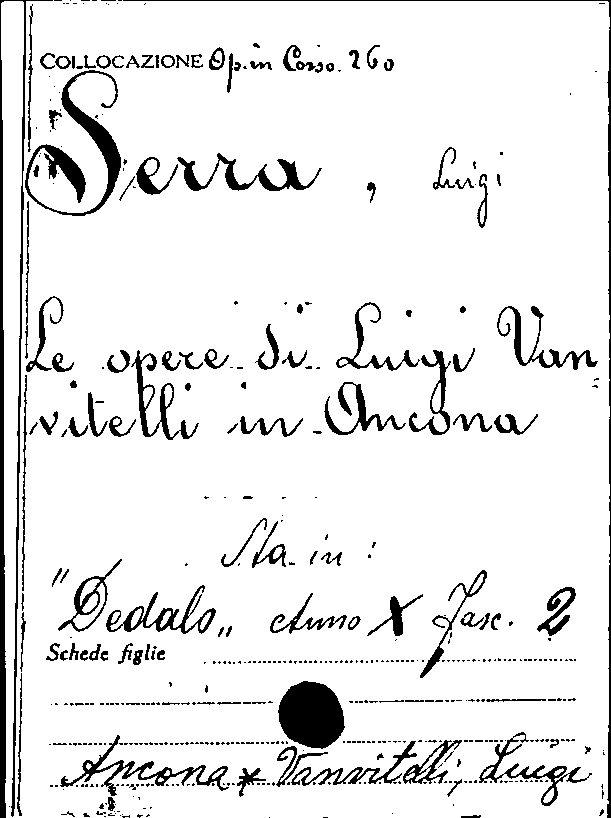 COLLOCAZIONE Op. in Corso. 260
Serra, Luigi
Le opere di Luigi Van
vitelli in Ancona
Sta in:
"Dedalo„ Anno X Fasc. 2
Schede figlie
Ancona * Vanvitelli, Luigi